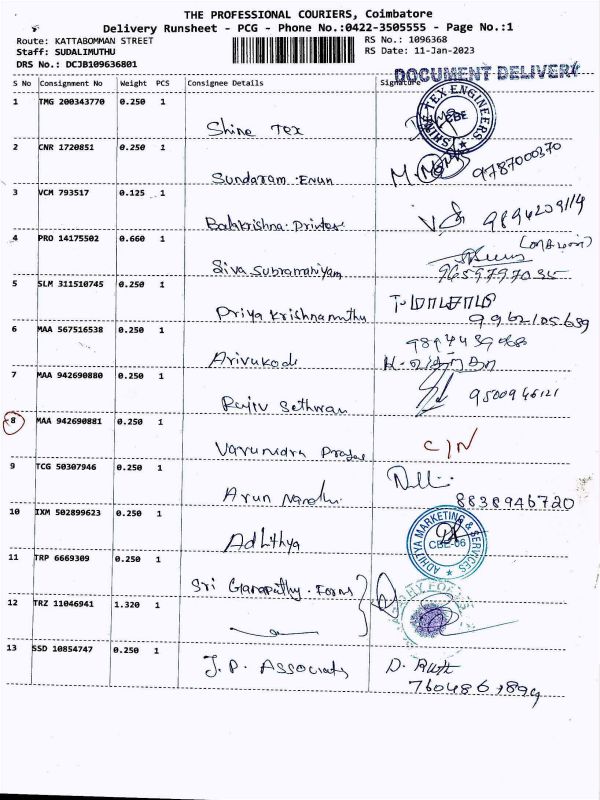 THE PROFESSIONAL COURIERS, Coimbatore
Delivery Runsheet - PCG - Phone No.:0422-3505555 - Page No.:1
Route: KATTABOMMAN STREET
RS No.: 1096368
Staff: SUDALIMUTHU
RS Date: 11-Jan-2023
DRS No.: DCJB109636801
DOCUMENT DELIVERY
S No Consignment No Weight PCS Consignee Details Signature
1 TMG 200343770 0.250 1
Shine Tex
SHINE TEX ENGINEERS CBE
2 CNR 1720851 0.250 1
Sundaram
9787000370
3 VCM 793517 0.125 1
Balakrishna
9894209114
4 PRO 14175502 0.660 1
Siva Subramaniyam
5 SLM 311510745 0.250 1
Priya Krishnamuthu
9962105659
6 MAA 567516538 0.250 1
Arivukodi
7 MAA 942690880 0.250 1
Rajiv
9500946121
8 MAA 942690881 0.250 1
C/N
9 TCG 50307946 0.250 1
Arun
8838946720
10 IXM 502899623 0.250 1
Adhithya
ADHITYA MARKETING & SERVICES CBE-06
11 TRP 6669309 0.250 1
Sri
12 TRZ 11046941 1.320 1
13 SSD 10854747 0.250 1
J.P. Associats